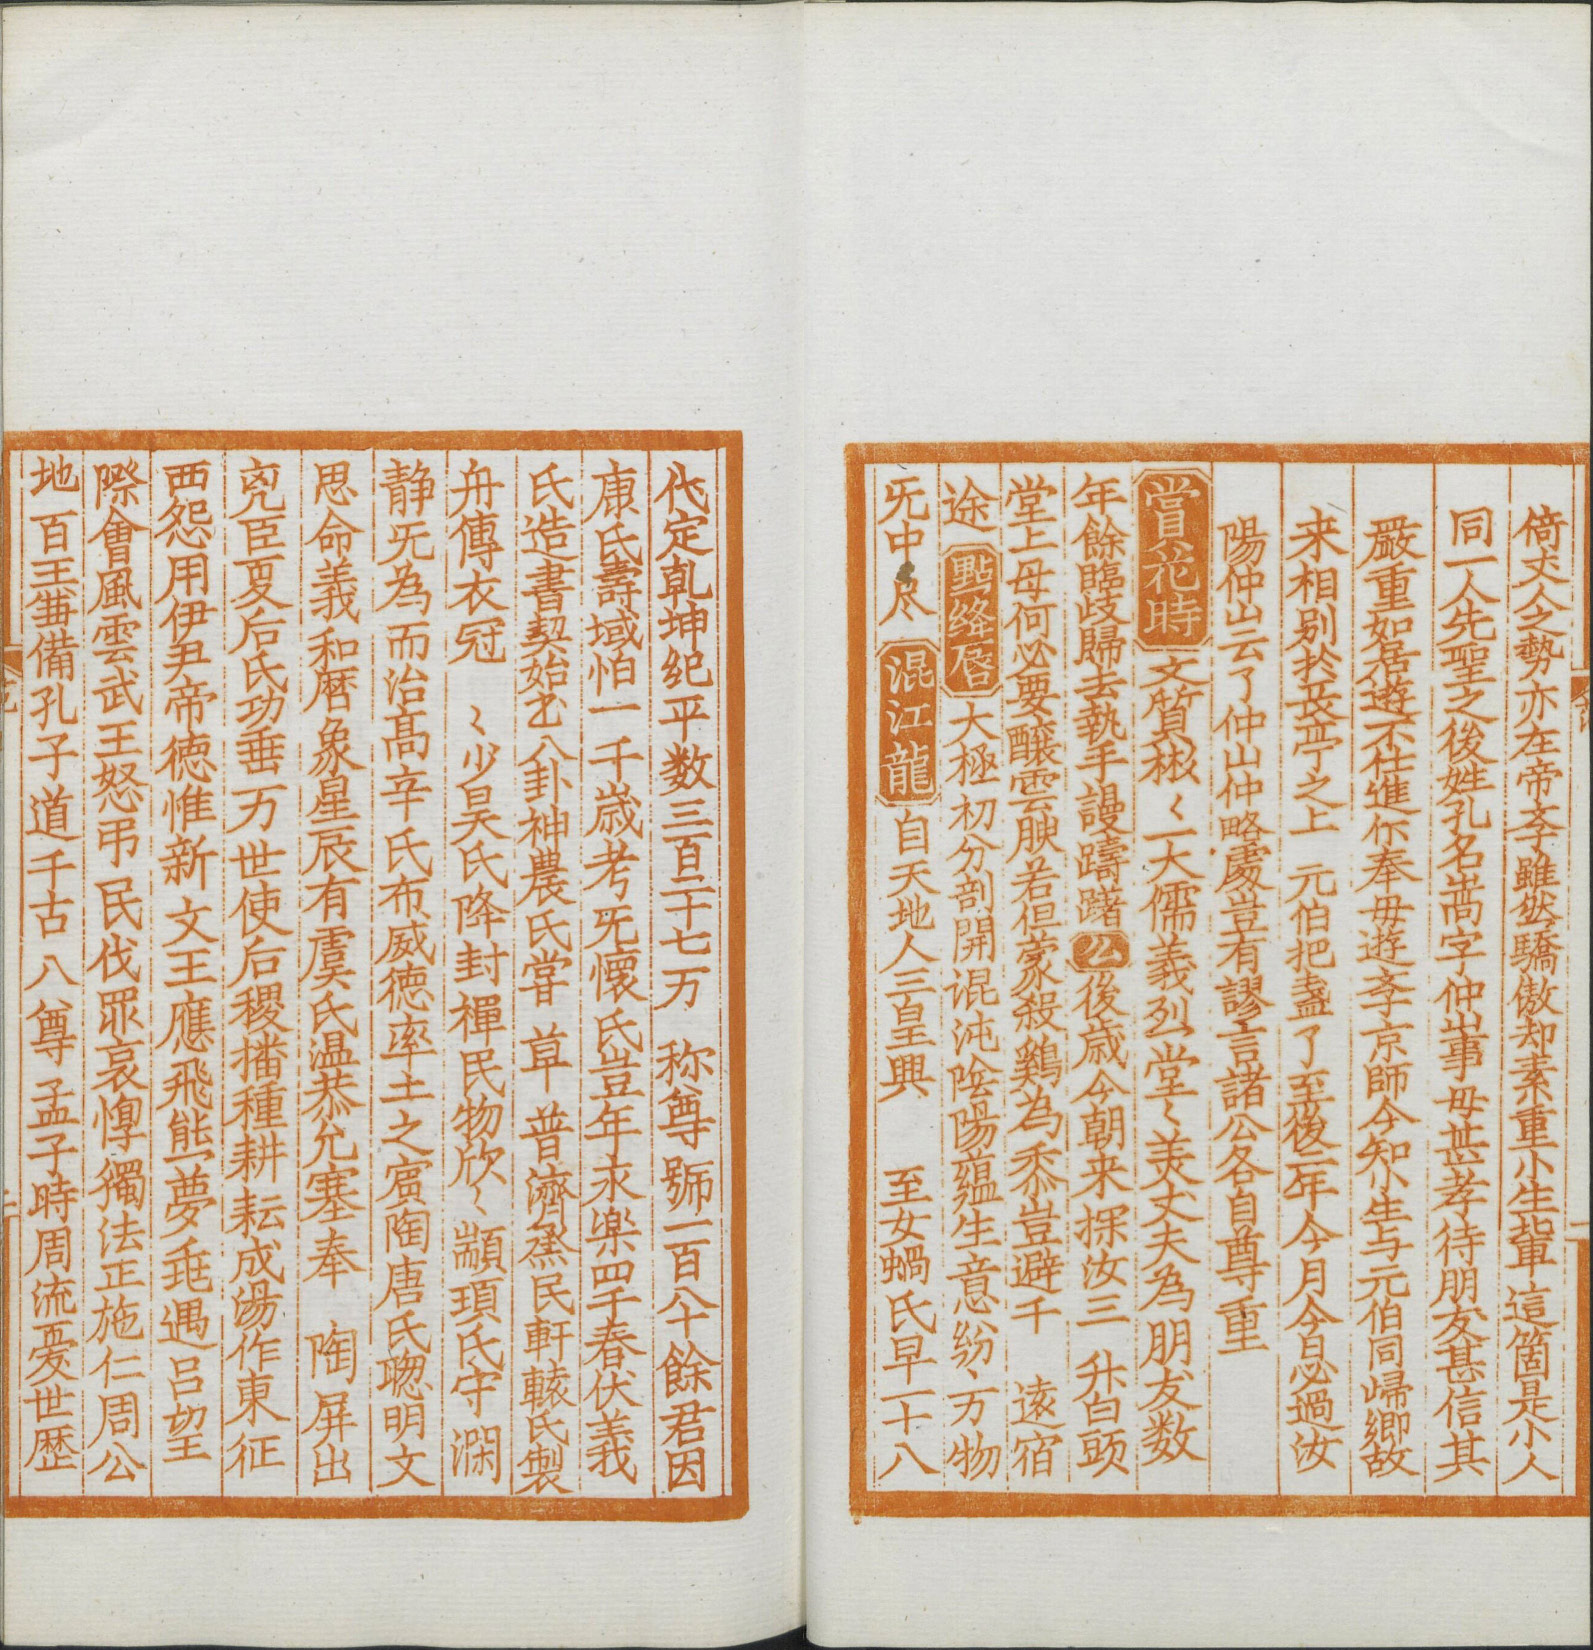 倚丈人之勢亦在帝斈雖然驕傲却素重小生軰這箇是小人
同一人先聖之後姓孔名嵩字仲山事母甚孝待朋友甚信其
嚴重如居遊不仕進你奉母遊斈京師今知小生与元伯同㱕鄉故
来相别扵長亭之上 元伯把盞了至後二年今月今日必過汝
陽仲山云了仲山仲略慶豈有謬言諸公各自尊重
賞花時 文質彬〻一大儒義烈堂〻美丈夫為朋友数
年餘臨歧歸去執手謾躊躇 公 後歳今朝来探汝三 升白頭
堂上母何必要釀雲腴若但蒙殺鷄為黍豈避千 逺宿
途 點絳唇 大極初分剖開混沌隂陽蕴生意紛〻万物
旡中尽 混江龍 自天地人三皇興 至女蝸氏早一十八
代定乹坤紀平数三百二十七万 称尊號一百八十餘君因
康氏壽域怕一千歳考旡懷氏豈年永楽四千春伏義
氏造書契始畫八卦神農氏甞草 普濟烝民軒轅氏製
舟傳衣冠 〻少昊氏降封禪民物欣〻顓頊氏守渊
静旡為而治髙辛氏布威德率土之賔陶唐氏聦明文
思命義和暦象星辰有虞氏温恭允塞奉 陶屏出
兇臣夏后氏功垂万世使后稷播種耕耘成湯作東征
西怨用伊尹帝德惟新 文王應飛熊夢兆遇吕望
際會風雲武王怒弔民伐罪哀惸獨法正施仁周公
地百王兼備孔子道千古 八尊孟子時周流憂世歴